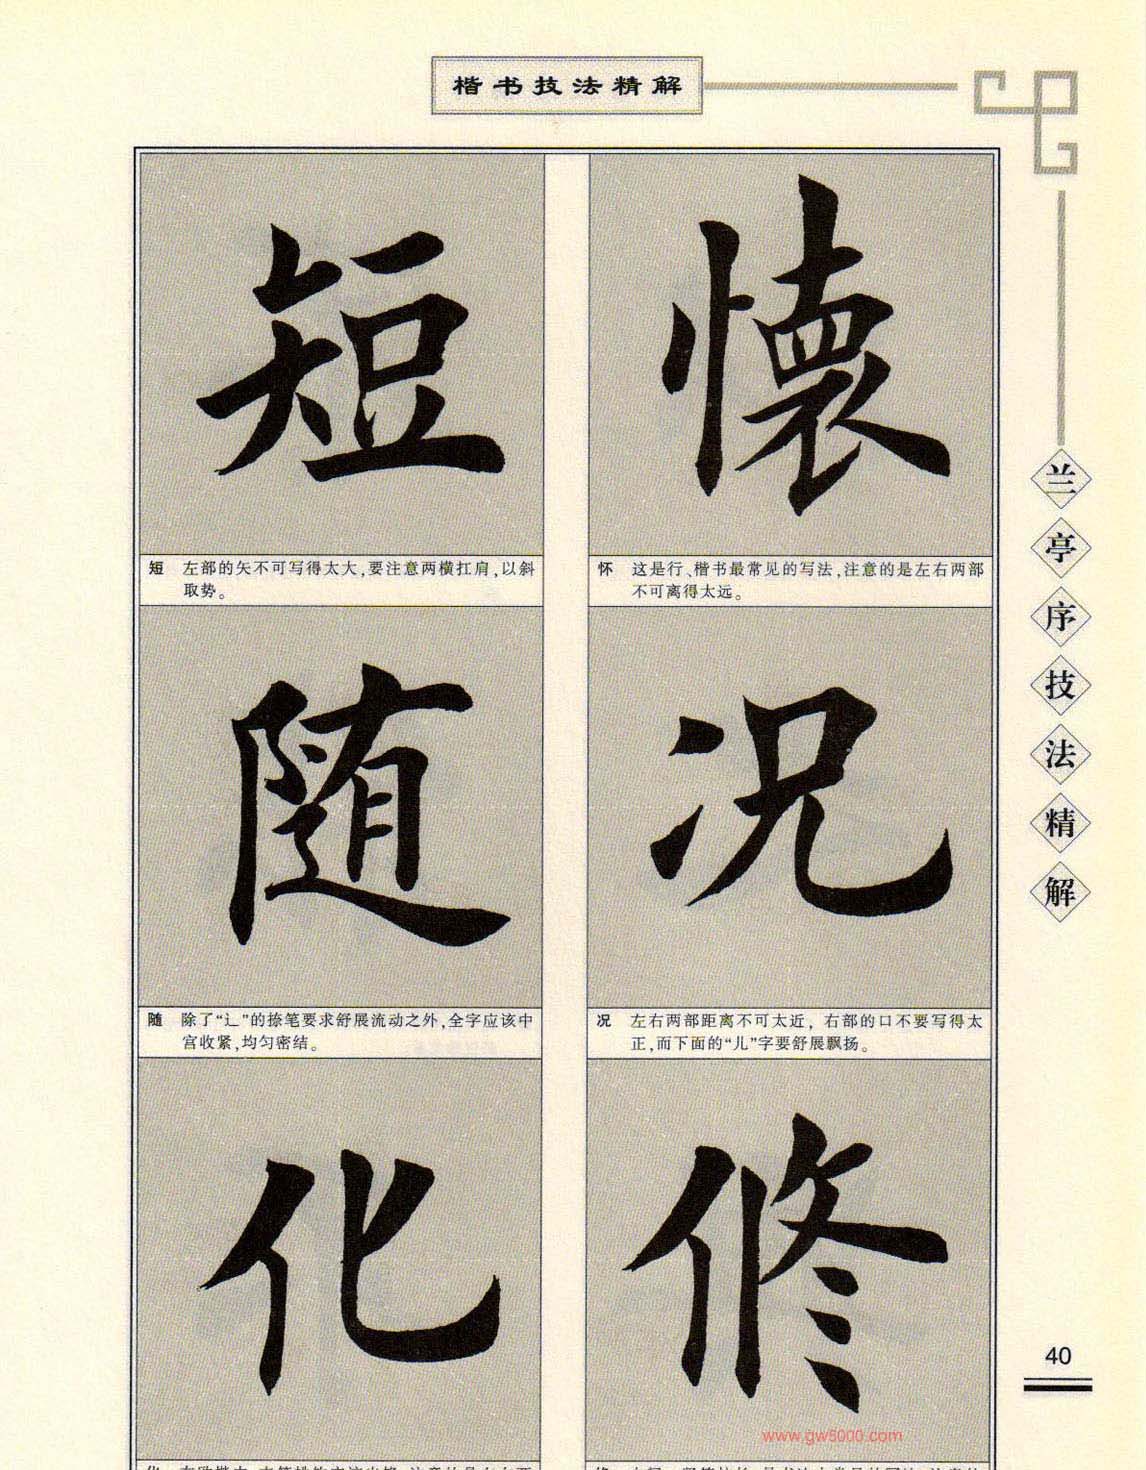 楷书技法精解
懷
怀 这是行、楷书最常见的写法,注意的是左右两部
不可离得太远。
况
况 左右两部距离不可太近, 右部的口不要写得太
正,而下面的“儿”字要舒展飘扬。
修
短
短 左部的矢不可写得太大,要注意两横扛肩,以斜
取势。
随
随 除了“辶”的捺笔要求舒展流动之外,全字应该中
宫收紧,均匀密结。
化
兰亭序技法精解
40
www.gw5000.com